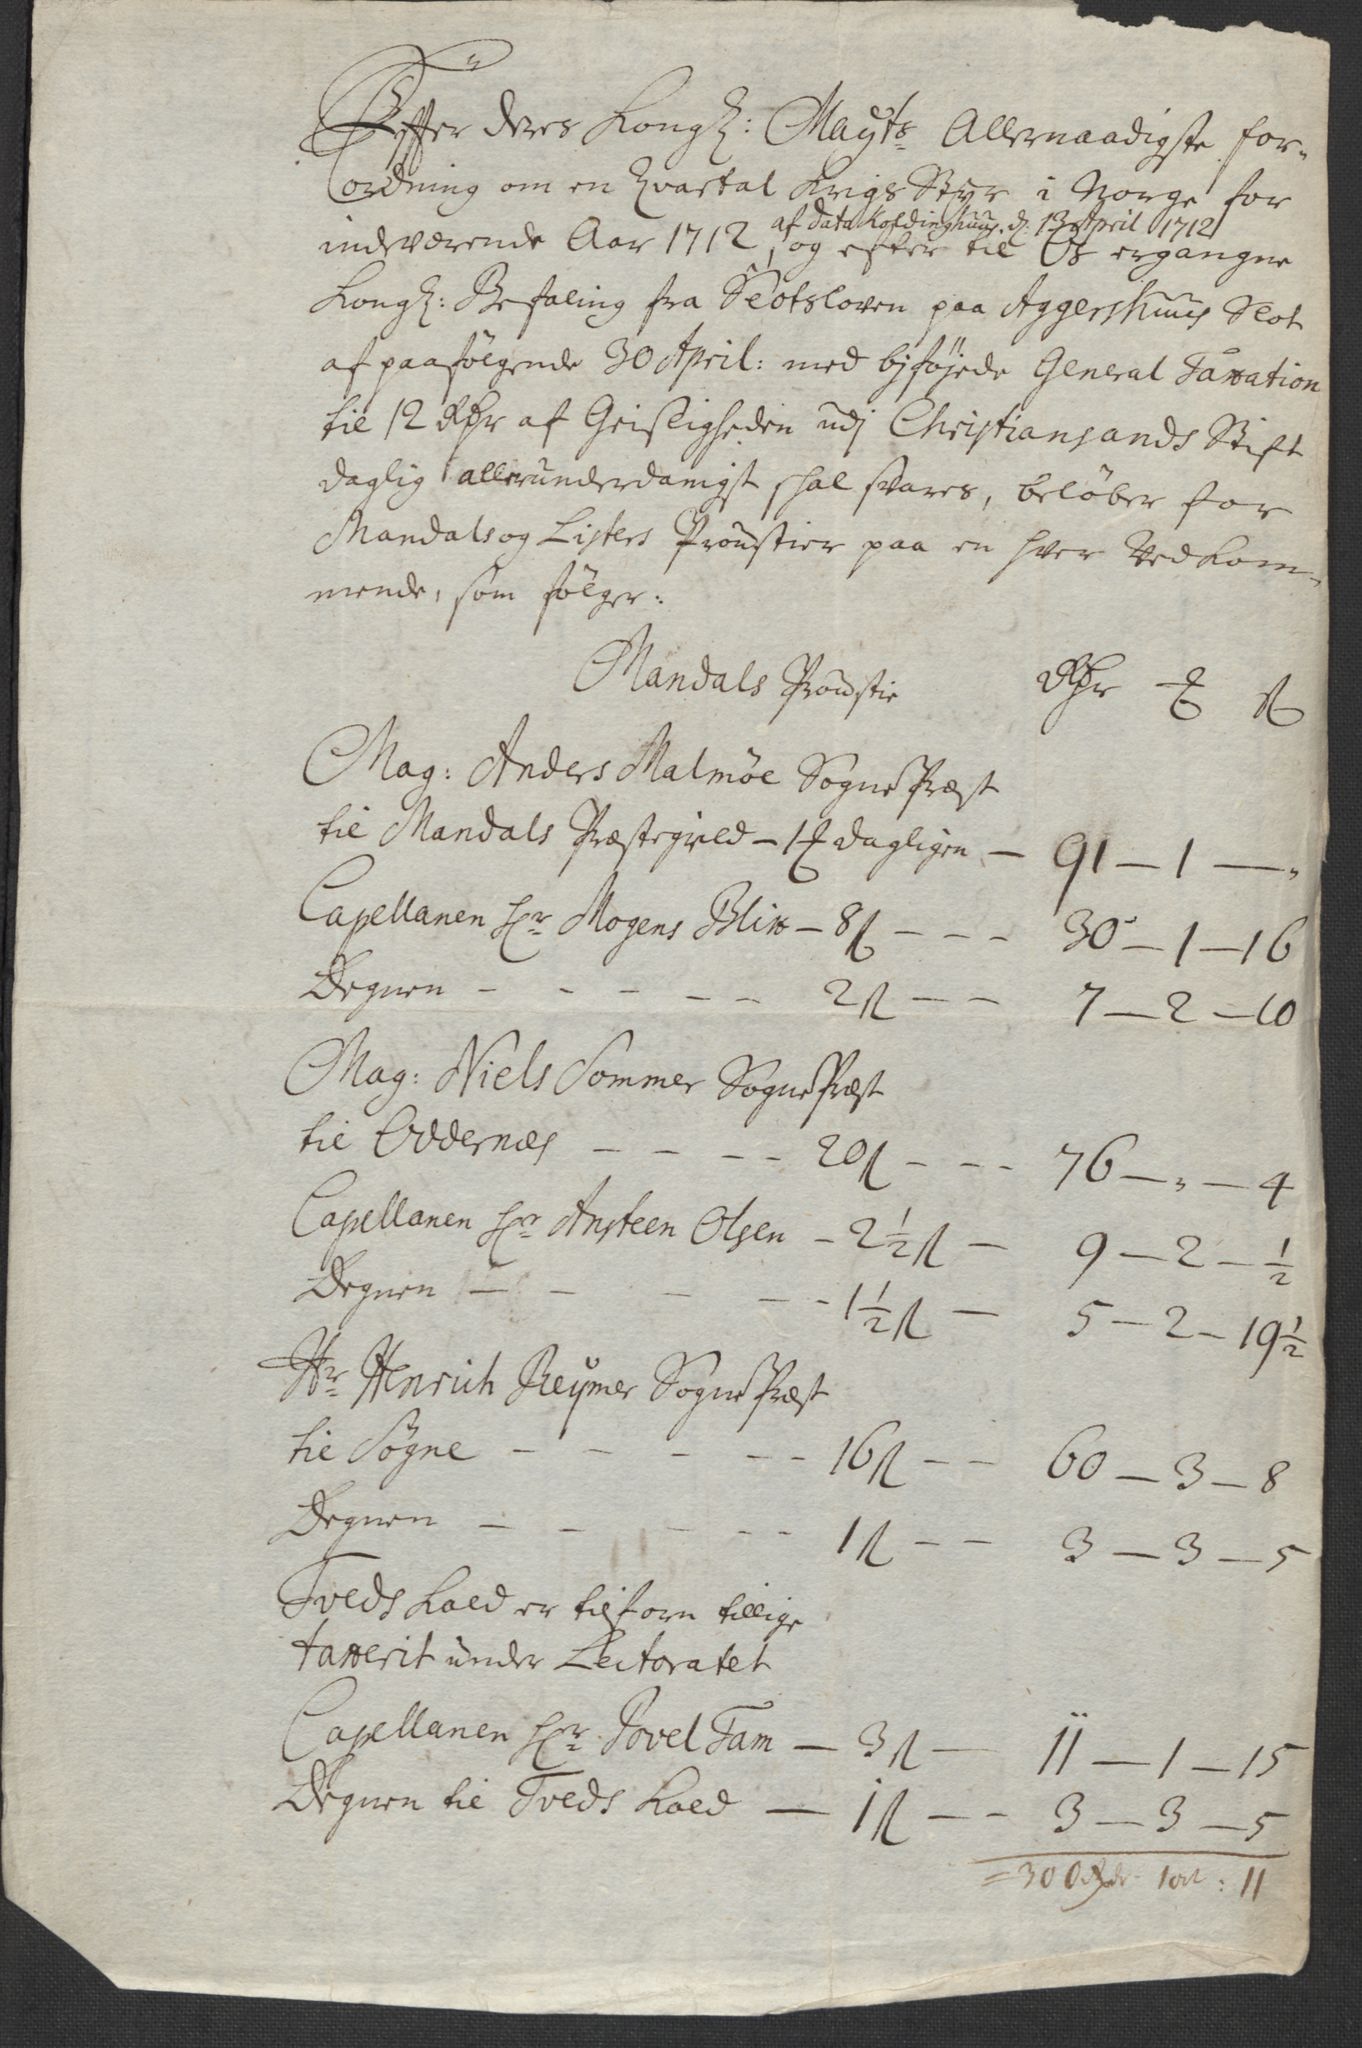 Efter deres Kongl: Mayts Allernaadigste for-
ordning om en qvartal Krigs Styr i Norge for
af Dato Koldinghuus d: 13 April 1712
indeværende Aar 1712, og efter til Os ergangne
Kongl: Befaling fra Slotsloven paa Aggershuus Slot
af paafölgende 30 April: med bjföjede General Taxation
til 12 Rdr af Geistligheden udj Christiansands Stift
daglig allerunderdanigst skal svares, belöber for
Mandals og Listers Proustier paa en hver Vedkom-
mende, som fölger:
Mandals Proustie Rdr ℔ ß
Mag: Anders Malmöe SognePræst
til Mandals Præstegield - 1 ℔ dagligen - 91 - 1 - "
Capellanen Hr Mogens Blix - 8ß - - - 30 - 1 - 16
Degnen - - - - - 2ß - - 7 - 2 - 10
Mag: Niels Sommer SognePræst
til Oddernæs - - - - 20ß - - - 76 - " - 4
Capellanen Hr Ansteen Olsen - 2½ß - 9 - 2 - ½
Degnen - - - - - 1½ß - 5 - 2 - 19½
Hr Henrich Reymer SognePræst
til Sögne - - - - - 16ß - - 60 - 3 - 8
Degnen - - - - - 1ß - - 3 - 3 - 5
Tveds Kald er tilforn tillige
taxerit under Lectoratet
Capellanen Hr Povel Tam - 3ß - 11 - 1 - 15
Degnen til Tveds Kald - 1ß - - 3 - 3 - 5
= 300 Rdr 1 ort : 11